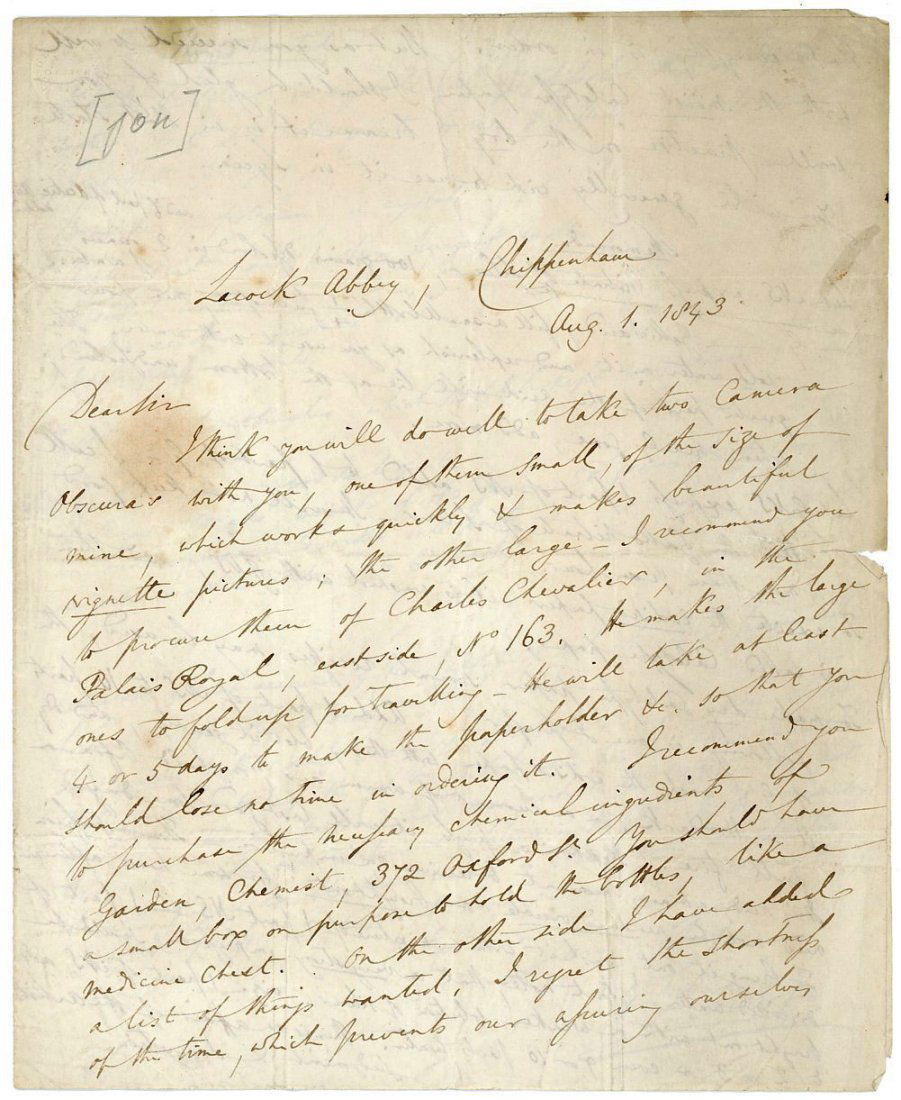 [jon]
Lacock Abbey, Chippenham
Aug. 1. 1843.
Dear Sir
I think you will do well to take two Camera
Obscura's with you, one of them small, of the size of
mine, which works quickly & makes beautiful
vignette pictures; the other large – I recommend you
to procure them of Charles Chevalier, in the
Palais Royal, east side, No 163. He makes the large
ones to fold up for travelling – He will take at least
4 or 5 days to make the paperholder &c. so that you
should lose no time in ordering it. I recommend you
to purchase the necessary chemical ingredients of
Garden, Chemist, 372 Oxford St. You should have
a small box on purpose to hold the bottles, like a
medicine chest. On the other side I have added
a list of things wanted. I regret the shortness
of the time, which prevents our assuring ourselves